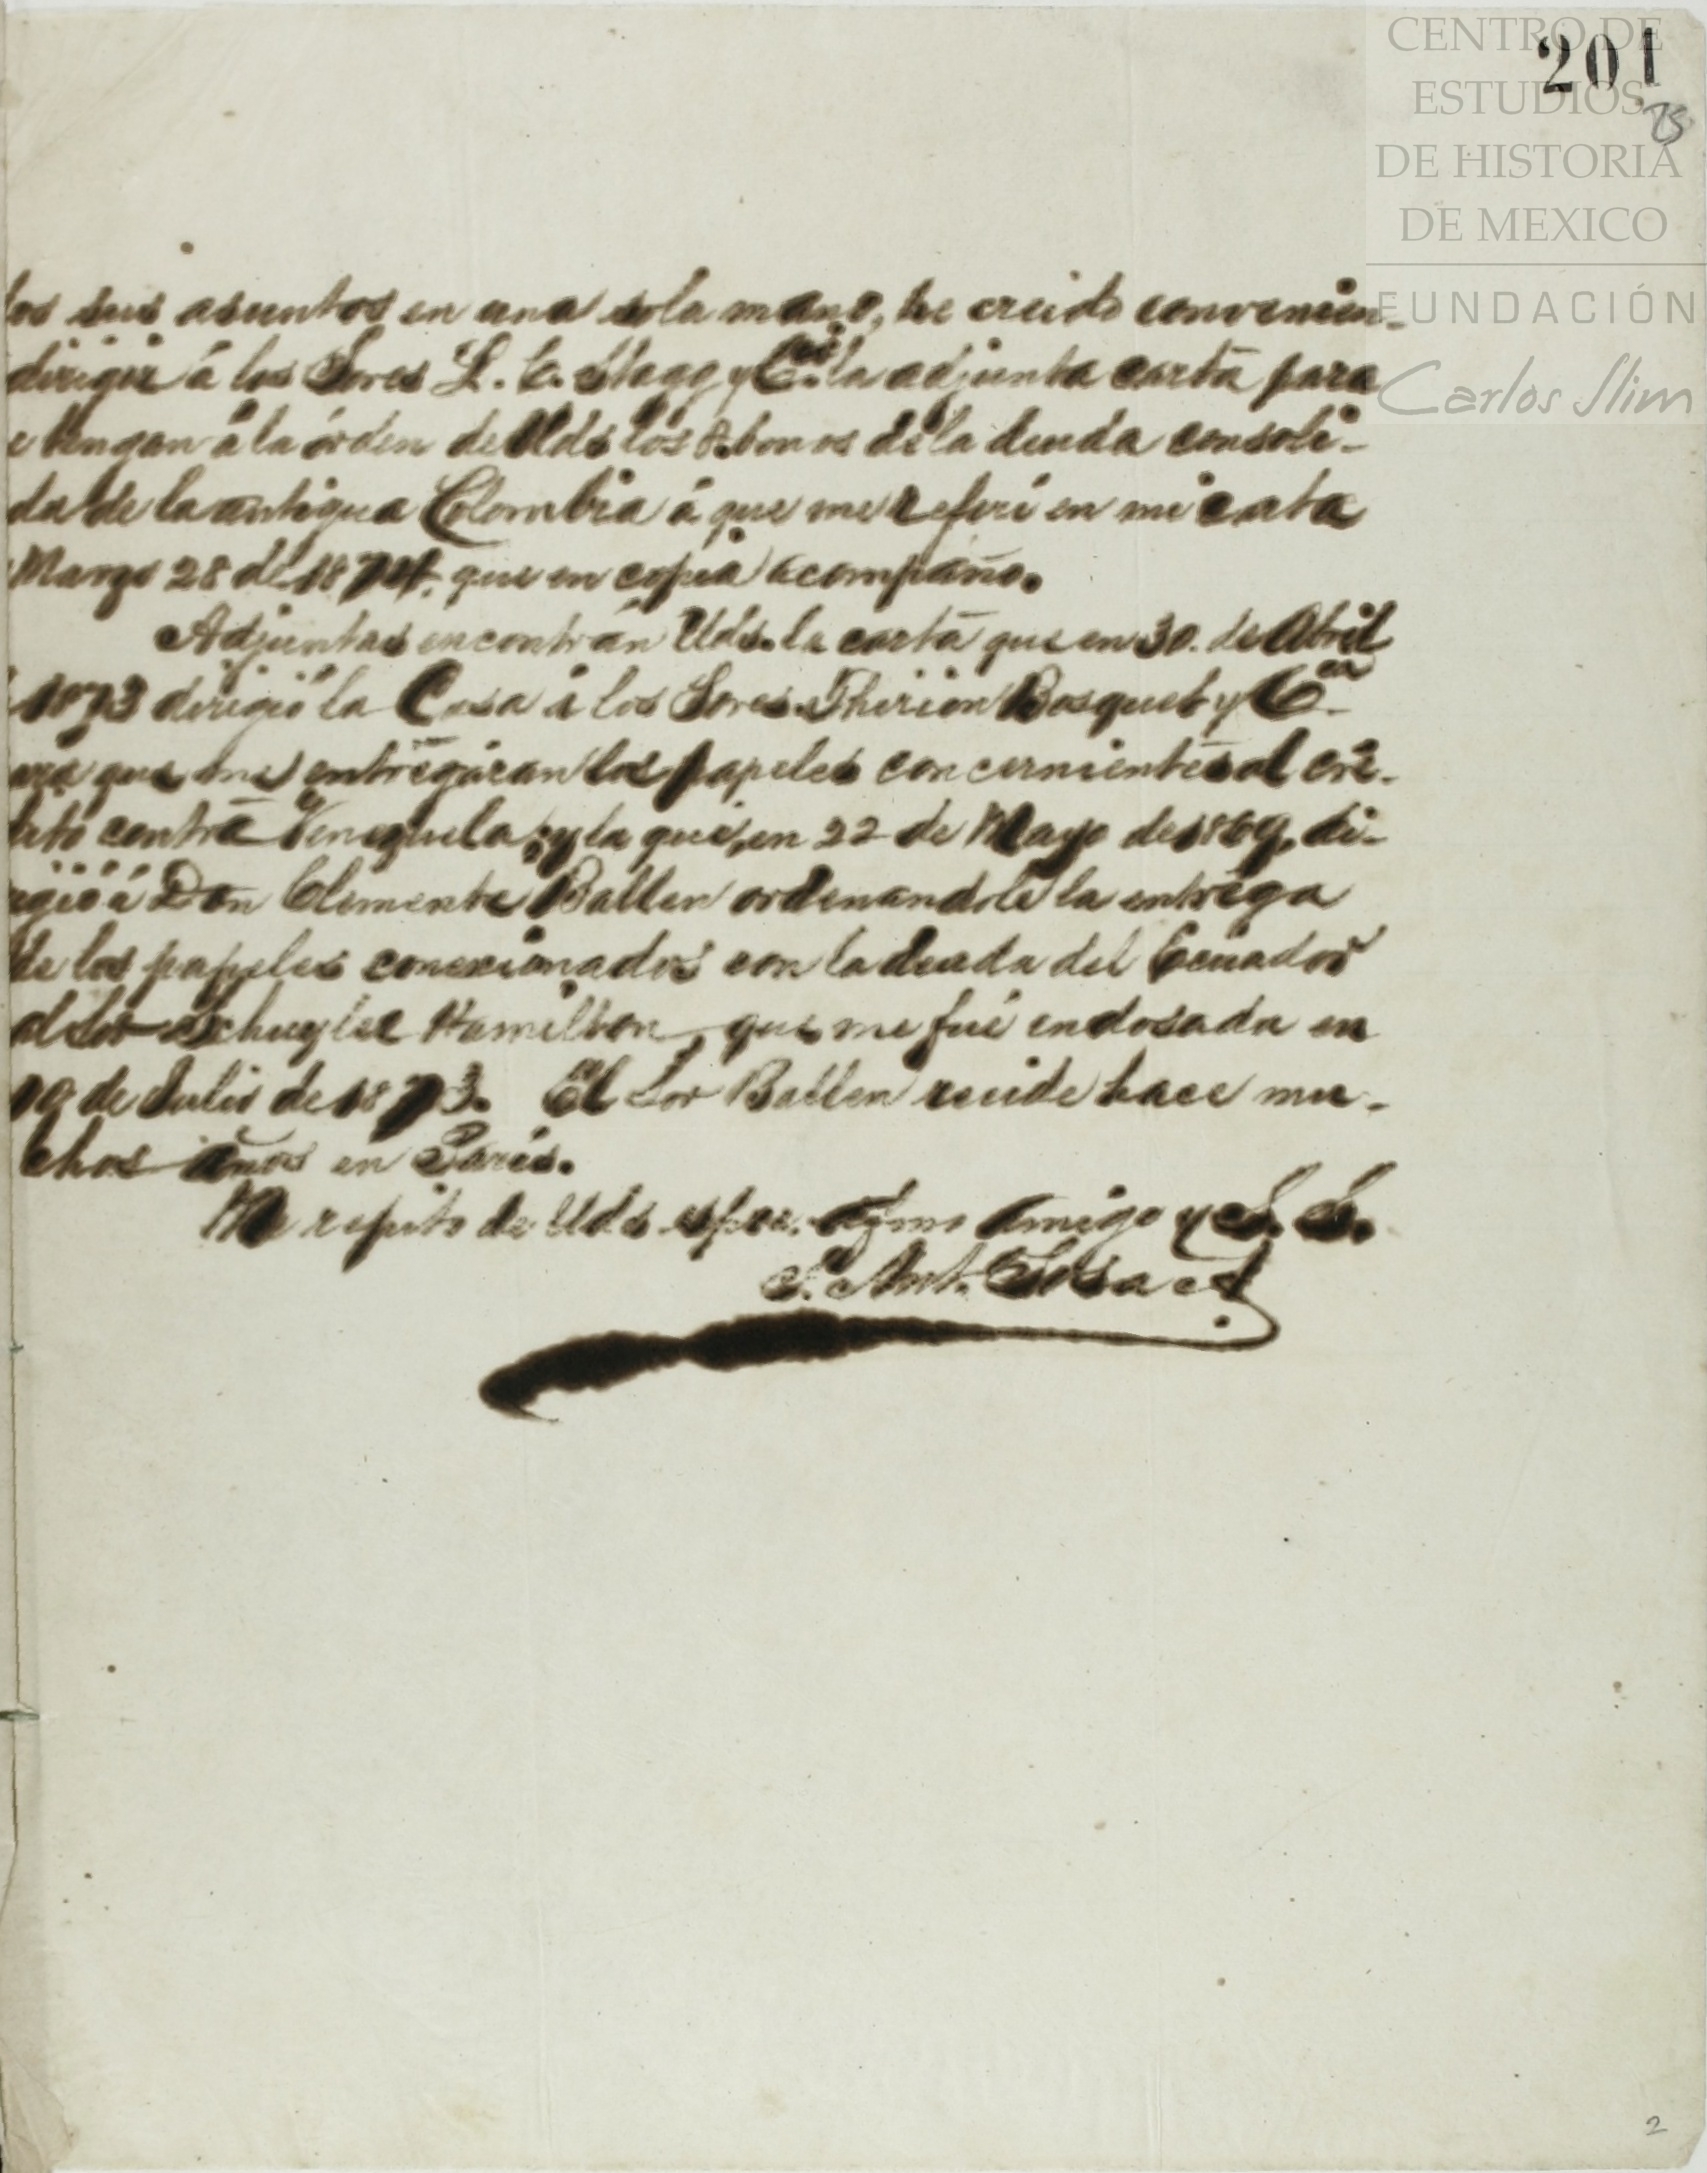 CENTRO DE
ESTUDIOS
DE HISTORIA
DE MEXICO
FUNDACIÓN
Carlos Slim
201
25
los sus asuntos en una sola mano, he creido convenien-
dirigir á los Sores L. E. Stagg y Cia. la adjunta carta para
e tengan á la órden de Uds los 8. bonos de la deuda consoli-
da de la antigua Colombia á que me referí en mi carta
Marzo 28 de 1874. que en copia acompaño.
Adjuntas encontrán Uds. la carta que en 30. de Abril
1873 dirigió la Casa á los Sores. Thirion Bosquet y Cia.
ara que me entregáran los papeles concernientes al cré-
dito contra Venezuela; y la que, en 22 de Mayo de 1869, di-
rigió á Don Clemente Ballen ordenandole la entrega
de los papeles conexionados con la deuda del Ecuador
al Sor Schuyler Hamilton, que me fué endosada en
10 de Julio de 1873. El Sor Ballen reside hace mu-
chos años en Paris.
Me repito de Uds afmo amigo y S. S.
Ant. Sosa
2